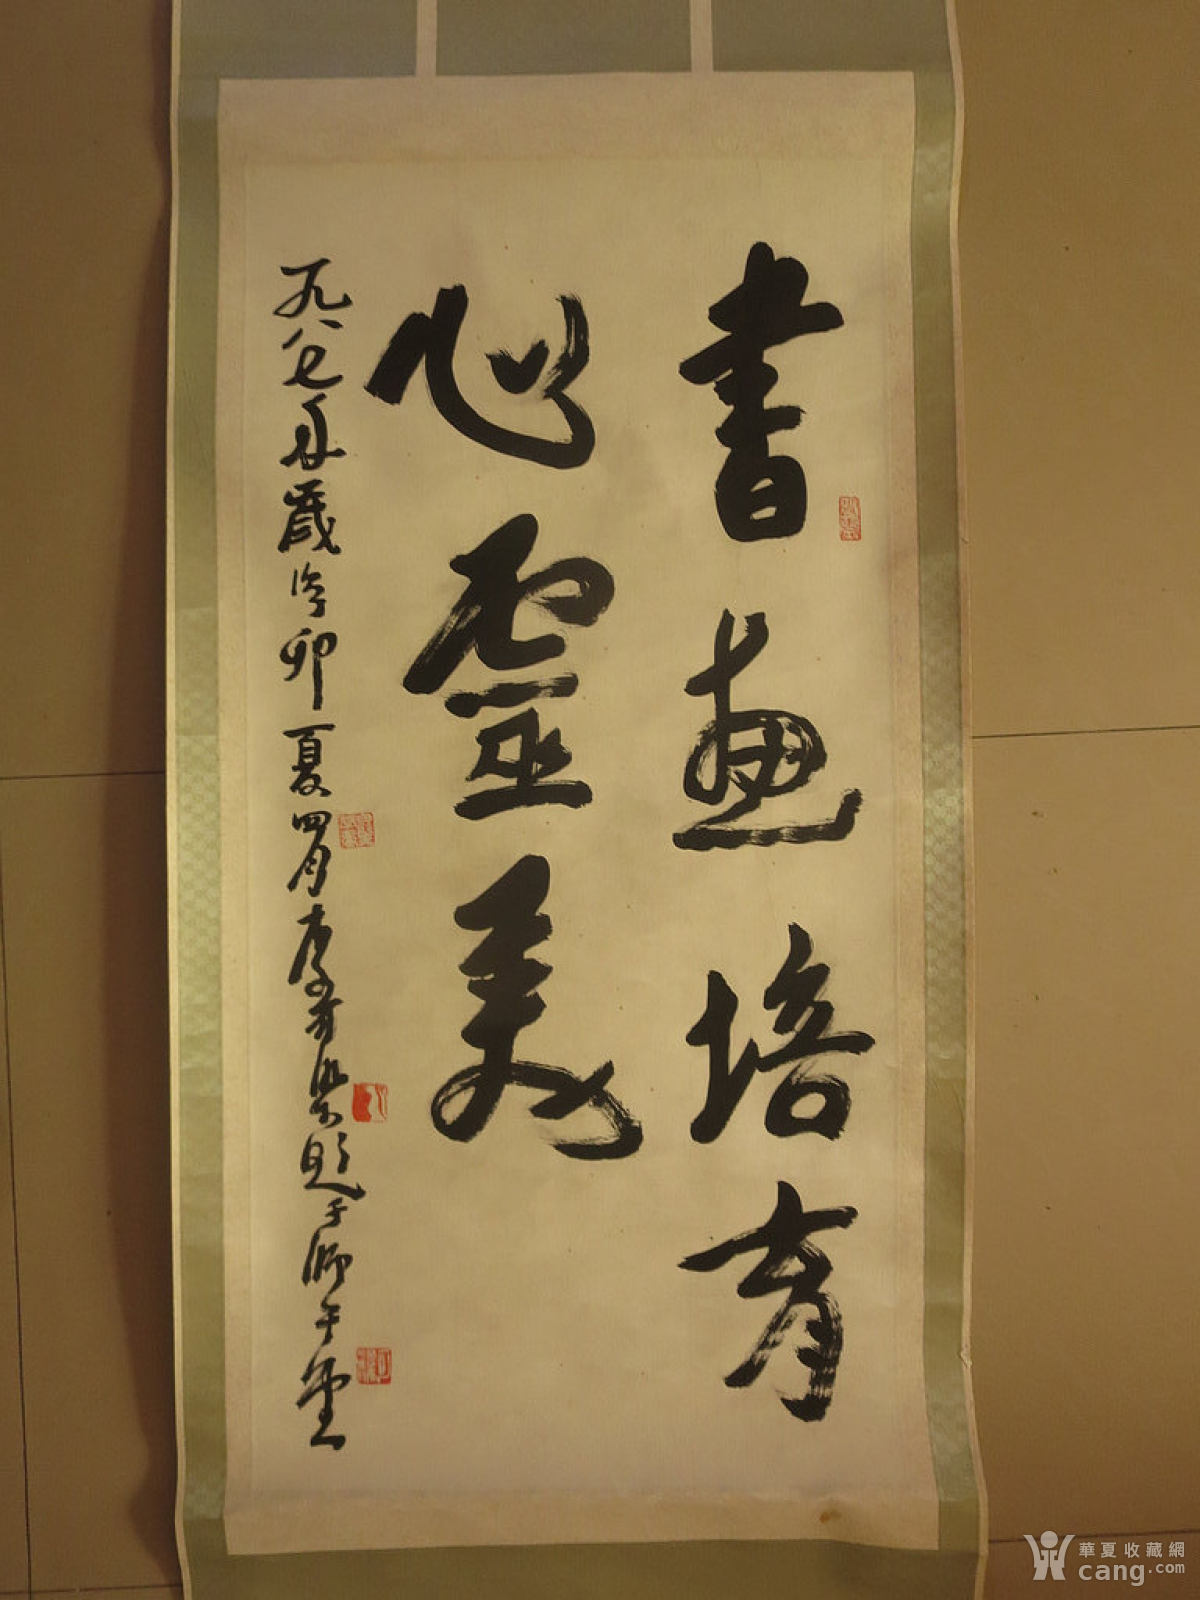 書畫培育
心靈美
一九八七年歲次丁卯夏四月李
題于師牛堂
華夏收藏網
cang.com